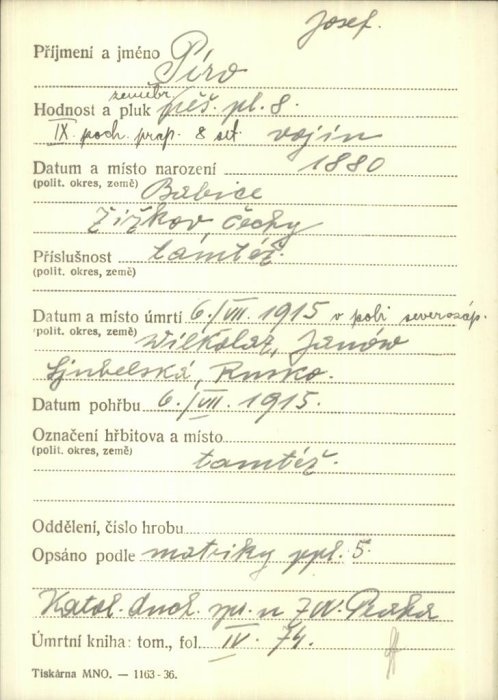 Josef.
Příjmení a jméno Píro
zeměbr.
Hodnost a pluk pěš. pl. 8.
IX. poch. prap. 8 set. vojín
Datum a místo narození 1880
(polit. okres, země) Babice
Žižkov, Čechy
Příslušnost tamtéž.
(polit. okres, země)
Datum a místo úmrtí 6./VII. 1915 v poli severozáp.
(polit. okres, země) Wilkolaz, Janów
Ljubelská, Rusko.
Datum pohřbu 6./VII. 1915.
Označení hřbitova a místo
(polit. okres, země) tamtéž.
Oddělení, číslo hrobu
Opsáno podle matriky ppl. 5.
Katol. duch. spr. n ZVV. Praha
Úmrtní kniha: tom., fol. IV. 74.
Tiskárna MNO. — 1163-36.